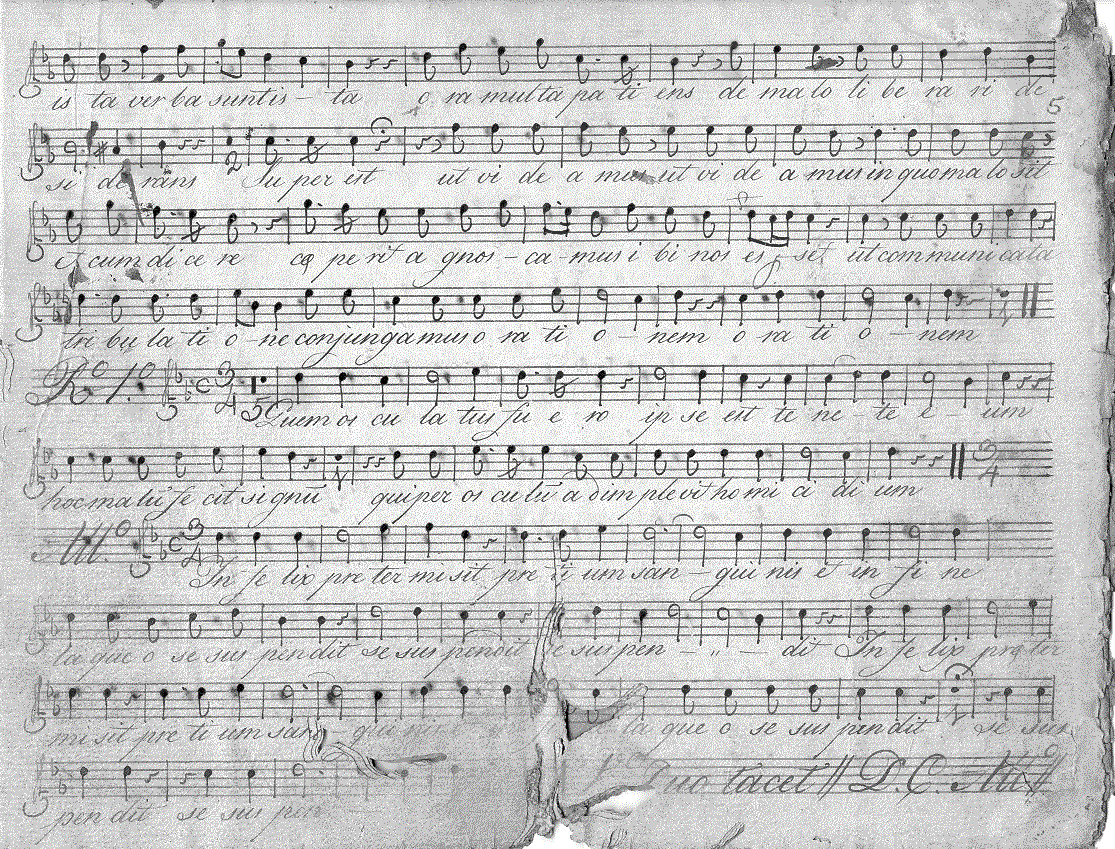 is ta ver ba sunt is - ta o ra mul ta pa ti ens de ma lo li be ra ri de
5
si de rans Su per est ut vi de a mus ut vi de a mus in quo ma lo sit
et cum di ce re cœ pe rit a gnos - ca - mus i bi nos es - set ut com muni cata
tri bu la ti o - ne conjungamus o ra ti o - nem o ra ti o - nem
Rº 1º C 3/4 5 Quem os cu la tus fu e ro ip se est te ne - te e - um
hoc ma lu fe cit si gnū qui per os cu lū a dim ple vit ho mi ci di um 3/4
C 3/4 In fe lix præ ter mi sit pre ti um san - gui nis et in fi ne
la que o se sus pen dit se sus pendit se sus pen - „ - dit In fe lix præ ter
mi sit pre ti um san - gui la que o se sus pen dit se sus
pen dit se sus pen
Duo tacet // D. C.